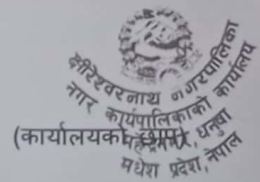 क्षीरेश्वरनाथ नगरपालिका
नगर कार्यपालिकाको कार्यालय
(कार्यालयको छाप)
धनुषा
मधेश प्रदेश, नेपाल